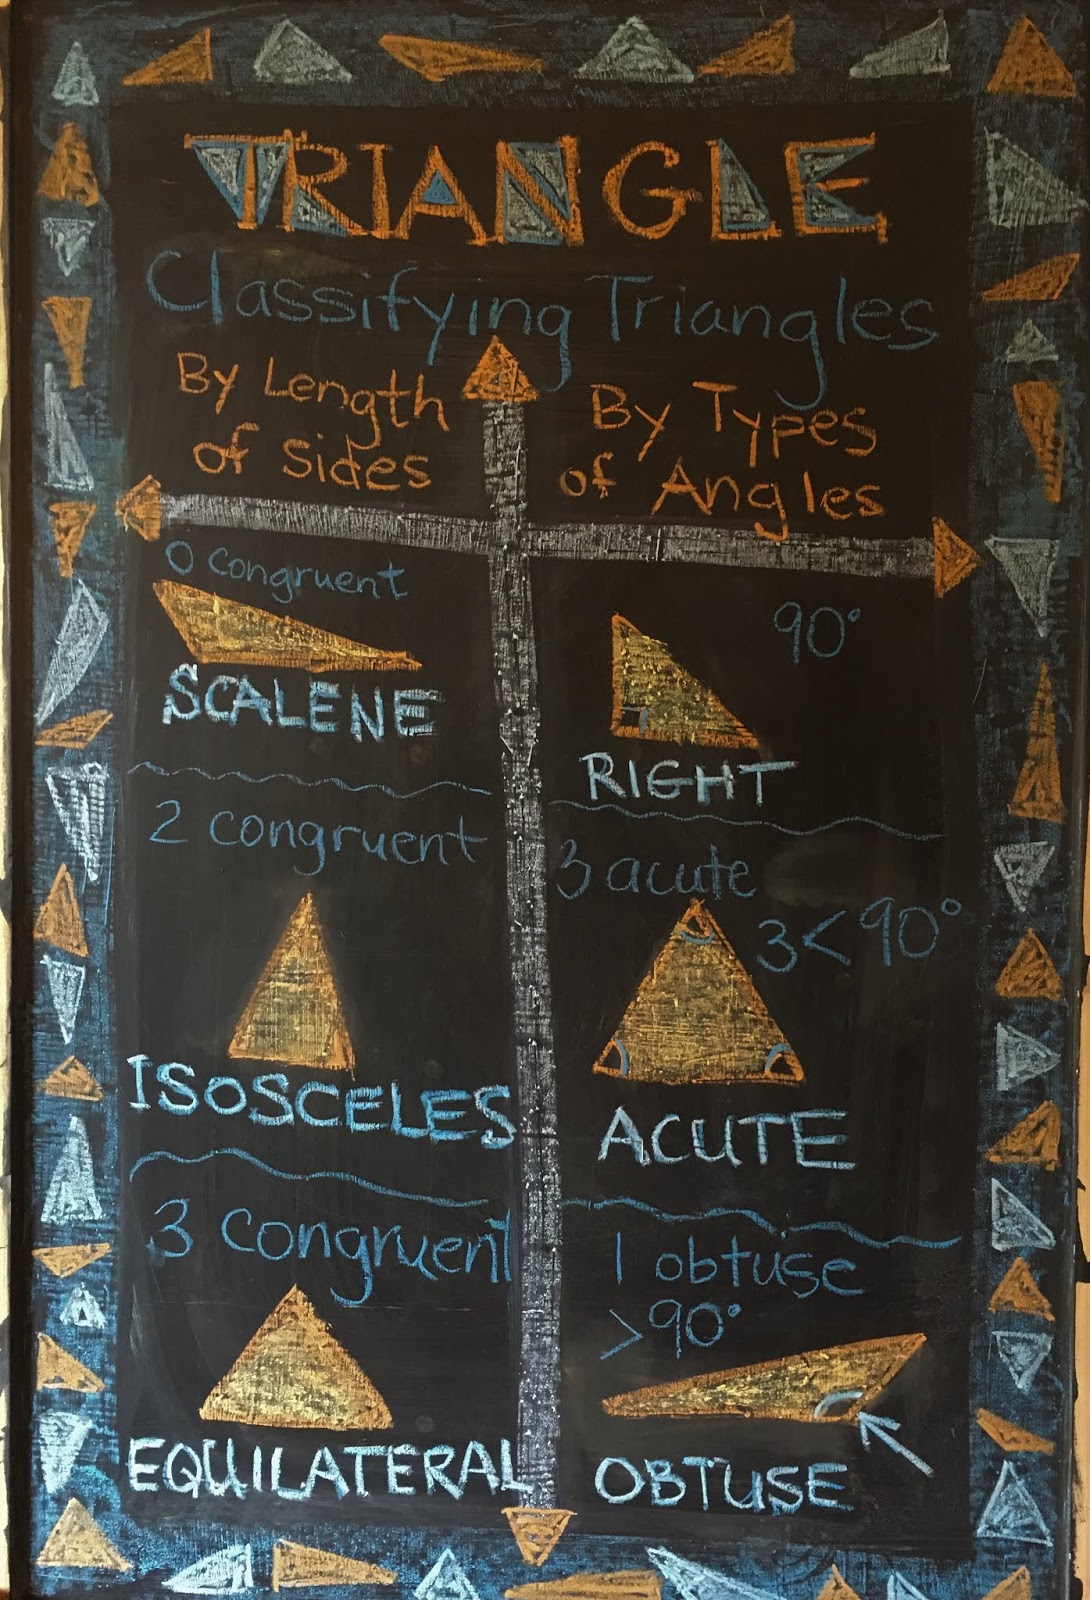 TRIANGLE
Classifying Triangles
By Length
of Sides
0 congruent
SCALENE
2 congruent
ISOSCELES
3 congruent
EQUILATERAL
By Types
of Angles
90°
RIGHT
3 acute
3 < 90°
ACUTE
1 obtuse
>90°
OBTUSE